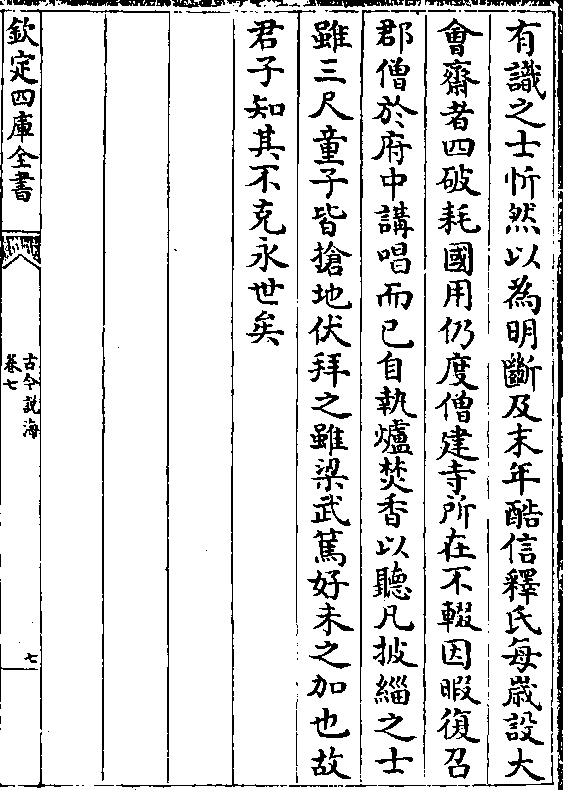 有識之士忻然以為明斷及末年酷信釋氏每歳設大
會齋者四破耗國用仍度僧建寺所在不輟因暇復召
郡僧於府中講唱而已自執爐焚香以聽凡披緇之士
雖三尺童子皆搶地伏拜之雖梁武篤好未之加也故
君子知其不克永世矣
欽定四庫全書
古今說海
卷七
七